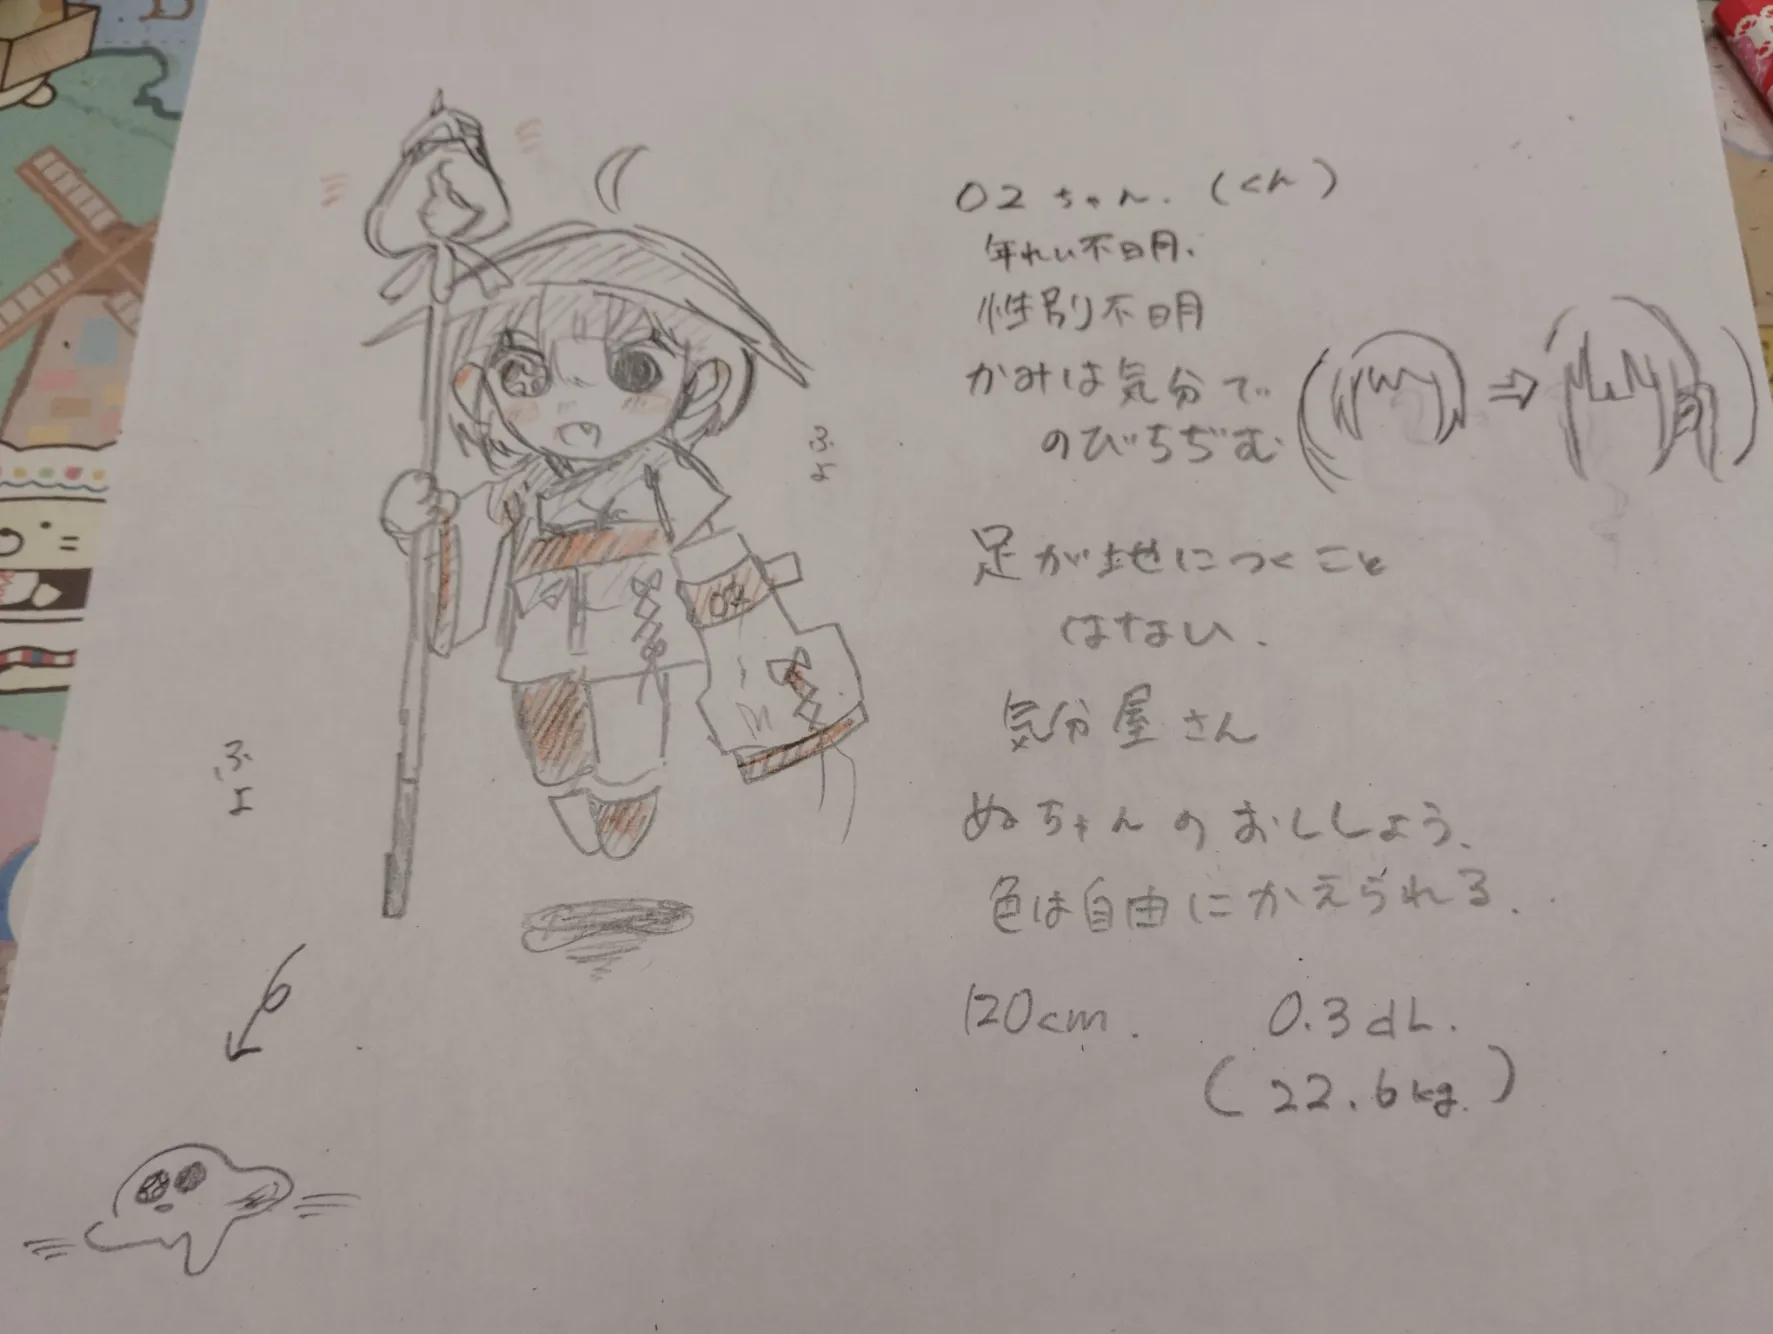 02ちゃん.(くん)
年れい不明.
性別不明
かみは気分で
のびちぢむ
足が地につくこと
はない.
気分屋さん
ぬちゃんのおししょう、
色は自由にかえられる..
120cm. 0.3dL.
(22.6kg.)
ふよ
ふよ